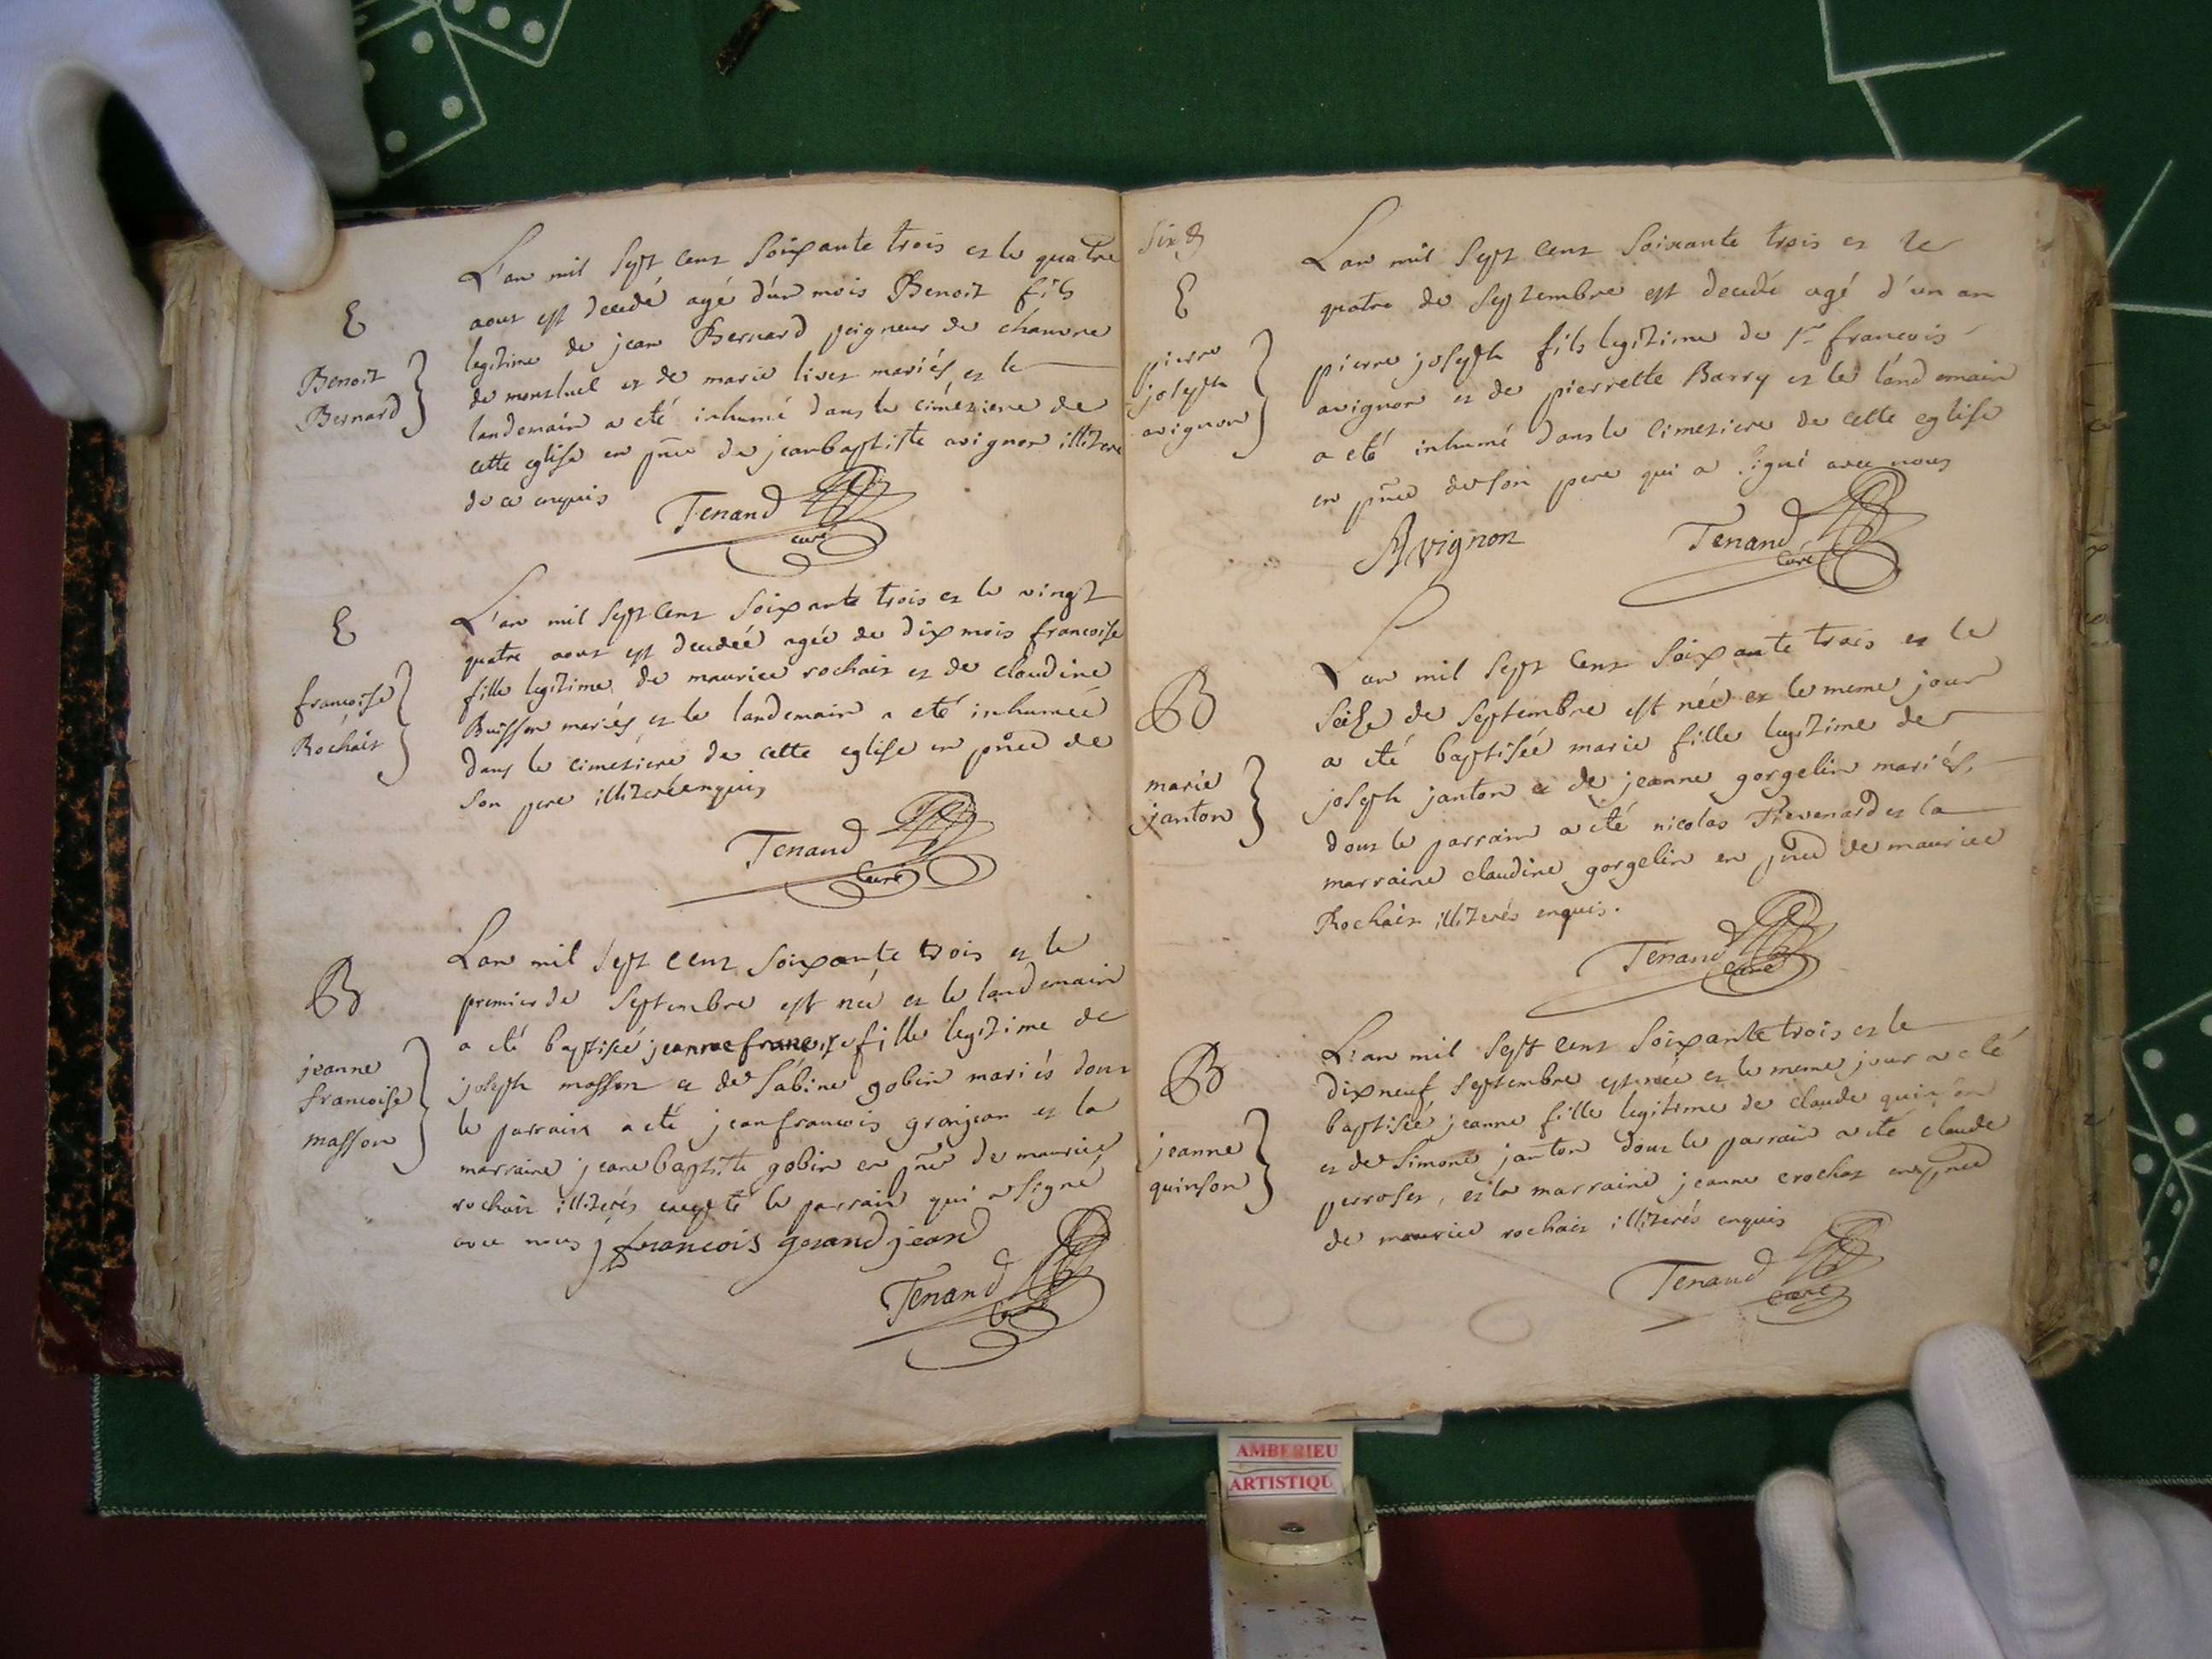 E
Benoit
Bernard
L'an mil sept cent soixante trois et le quatre
aout est decedé agé d'un mois Benoit fils
legitime de jean Bernard peigneur de chanvre
de montluel et de marie livet mariés, et le
landemain a eté inhumé dans le cimetiere de
cette eglise en pñce de jeanbaptiste avignon illiteré
de ce enquis
Tenand
curé
E
francoise
Rochaix
L'an mil sept cent soixante trois et le vingt
quatre aout est decedéé agéé de dix mois francoise
fille legitime de maurice rochaix et de claudine
Buisson mariés, et le landemain a eté inhuméé
dans le cimetiere de cette eglise en pñce de
son pere illiteré enquis
Tenand
curé
B
jeanne
francoise
masson
Lan mil sept cent soixante trois et le
premier de septembre est néé et le landemain
a eté baptisée jeanne francoise fille legitime de
joseph masson et de Sabine gobin mariés dont
le parrain a eté jeanfrancois granjean et la
marraine jeanebaptiste gobin en pñce de maurice
rochaix illiterés excepté le parrain qui a signé
avec nous j francois gerand jeand
Tenand
curé
six 8
E
pierre
joseph
avignon
Lan mil sept cent soixante trois et le
quatre de septembre est decedé agé d'un an
pierre joseph fils legitime de sr francois
avignon et de pierrette Barry et le landemain
a eté inhumé dans le cimetiere de cette eglise
en pñce de son pere qui a signé avec nous
Avignon
Tenand
curé
B
marie
janton
L'an mil sept cent soixante trois et le
seise de septembre est néé et le meme jour
a eté baptiséé marie fille legitime de
joseph janton et de jeanne gorgelin mariés,
dont le parrain a eté nicolas Thevenard et la
marraine claudine gorgelin en pñce de maurice
Rochaix illiterés enquis.
Tenand
curé
B
jeanne
quinson
L'an mil sept cent soixante trois et le
dixneuf septembre est néé et le meme jour a eté
baptiséé jeanne fille legitime de claude quinson
et de Simone janton dont le parrain a eté claude
perroset, et la marraine jeanne crochet en pñce
de maurice rochaix illiterés enquis
Tenand
curé
AMBERIEU
ARTISTIQU